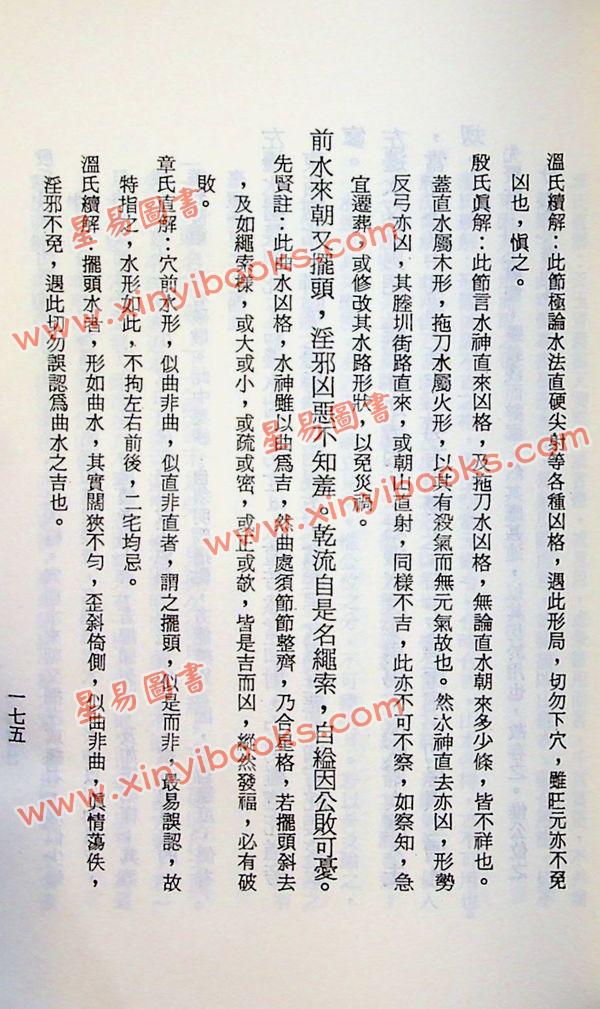 溫氏續解：此節極論水法直硬尖射等各種凶格，遇此形局，切勿下穴，雖旺元亦不免
凶也，慎之。
殷氏眞解：此節言水神直來凶格，及拖刀水凶格，無論直水朝來多少條，皆不祥也。
蓋直水屬木形，拖刀水屬火形，以其有殺氣而無元氣故也。然水神直去亦凶，形勢
反弓亦凶，其塍圳街路直來，或朝山直射，同樣不吉，此亦不可不察，如察知，急
宜遷葬，或修改其水路形狀，以免災禍。
前水來朝又擺頭，淫邪凶惡不知羞。乾流自是名繩索，自縊因公敗可憂。
先賢註：此曲水凶格，水神雖以曲爲吉，然曲處須節節整齊，乃合星格，若擺頭斜去
，及如繩索樣，或大或小，或疏或密，或正或欹，皆是吉而凶，縱然發福，必有破
敗。
章氏直解：穴前水形，似曲非曲，似直非直者，謂之擺頭，似是而非，最易誤認，故
特指之，水形如此，不拘左右前後，二宅均忌。
溫氏續解：擺頭水者，形如曲水，其實闊狹不勻，歪斜倚側，似曲非曲，眞情蕩佚，
淫邪不免，遇此切勿誤認爲曲水之吉也。
一七五
星易圖書
www.xinyibooks.com
星易圖書
www.xinyibooks.com
星易圖書
www.xinyibooks.com